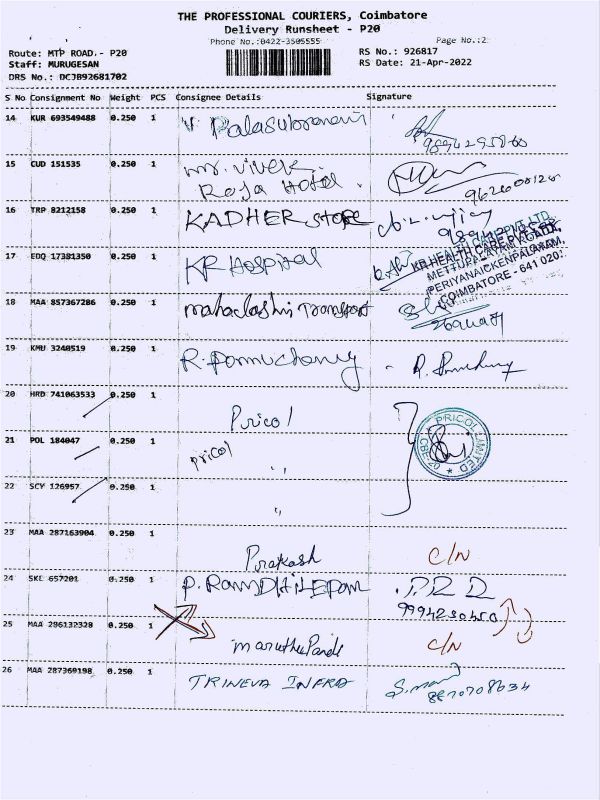 THE PROFESSIONAL COURIERS, Coimbatore
Delivery Runsheet - P20
Phone No.:0422-3505555 Page No.:2
Route: MTP ROAD.- P20 RS No.: 926817
Staff: MURUGESAN RS Date: 21-Apr-2022
DRS No.: DCJB92681702
S No Consignment No Weight PCS Consignee Details Signature
14 KUR 693549488 0.250 1 V. Palasubramani
15 CUD 151535 0.250 1 mr. vivek.
Roja Hotel.
16 TRP 8212158 0.250 1 KADHER STORE
17 EDQ 17381350 0.250 1 KR Hospital
KR HEALTH CARE PVT LTD
METTUPPALAYAM ROAD,
PERIYANAICKENPALAYAM,
COIMBATORE - 641 020
18 MAA 857367286 0.250 1 mahalashmi Transport
19 KMU 3240519 0.250 1 R.
20 HRD 741063533 0.250 1 Pricol
PRICOL LIMITED
CBE
21 POL 184047 0.250 1 pricol
"
22 SCY 126957 0.250 1
"
23 MAA 287163904 0.250 1
Prakash C/N
24 SKL 657201 0.250 1 P.
9994230450
25 MAA 286132328 0.250 1
C/N
26 MAA 287369198 0.250 1 TRINEVA INFRA
8870708634